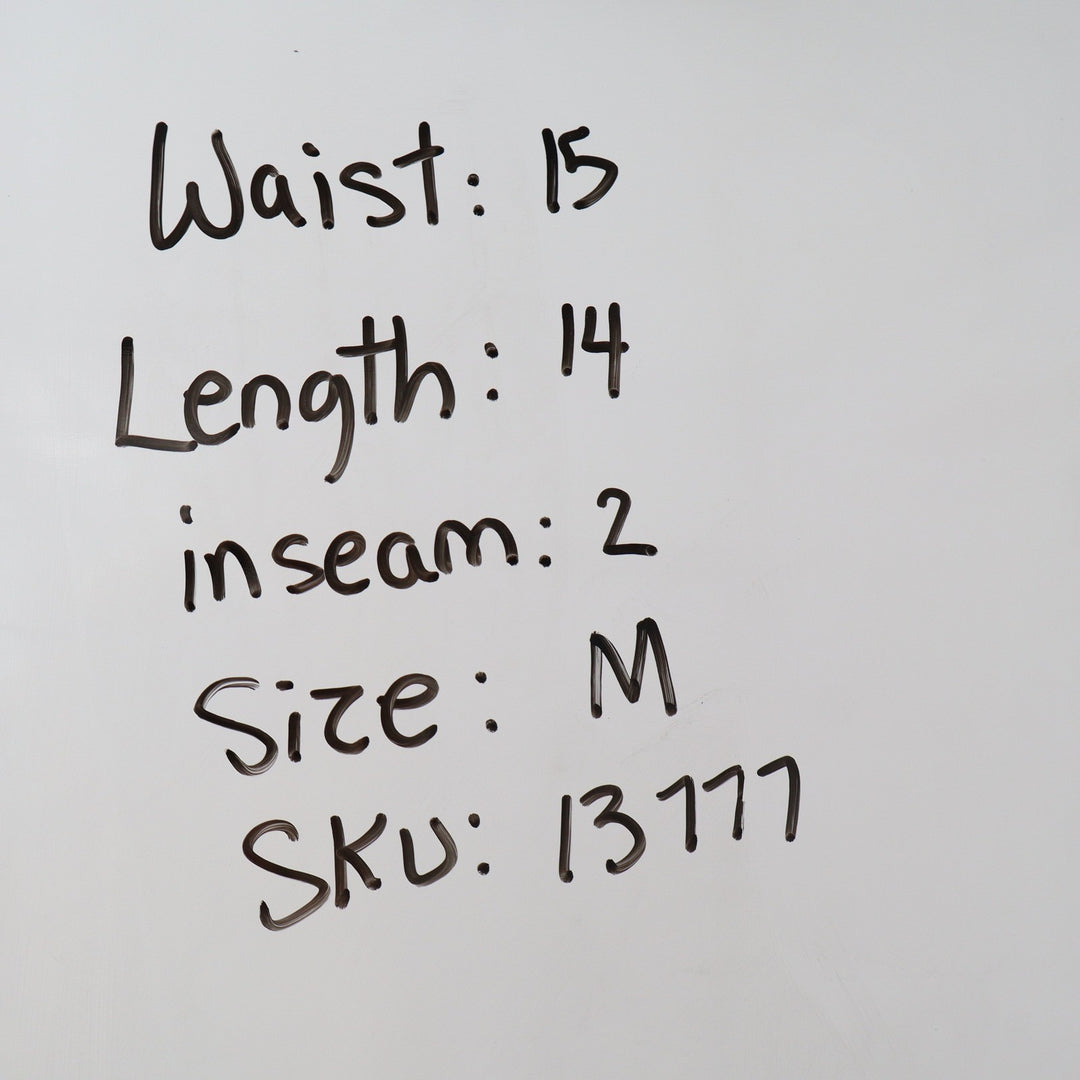 Waist: 15
Length: 14
inseam: 2
Size: M
SKU: 13777